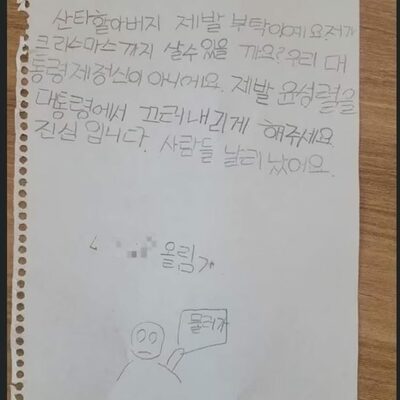 산타할아버지 제발 부탁이예요. 저가
크리스마스까지 살수 있을 까요? 우리 대
통령 제정신이 아니에요. 제발 윤성렬을
대통령에서 끄러내리게 해주세요
진심 입니다. 사람들 날리 났어요.
올림
물러가